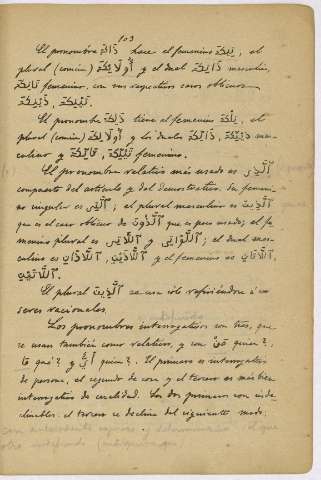 103
El pronombre ذَاكَ hace el femenino تِيكَ, el
plural (comun) أُولَائِكَ y el dual ذَانِكَ masculino,
تَانِكَ femenino, con sus respectivos casos oblicuos
تَيْنِكَ, ذَيْنِكَ.
El pronombre ذَلِكَ tiene el femenino تِلْكَ, el
plural (comun) أُولَالِكَ y los duales ذَانِّكَ, ذَيْنِّكَ mas-
culino y تَانِّكَ, تَيْنِّكَ femenino.
El pronombre relativo más usado es اَلَّذِى
compuesto del artículo y del demostrativo. Su femeni-
no singular es اَلَّتِى; el plural masculino es اَلَّذِينَ
que es el caso oblicuo de اَلَّذُونَ que es poco usado; el fe-
menino plural es اَللَّاتِى y اَللَّوَاتِى; el dual mas-
culino es اَللَّذَانِ, اَللَّذَيْنِ y el femenino es اَللَّتَانِ
اَللَّتَيْنِ.
El plural اَلَّذِينَ se usa sólo refiriéndose á
seres racionales.
Los pronombres interrogativos son tres, que
se usan también como relativos, y son مَنْ quien?,
مَا qué? y أَىُّ quien?. El primero es interrogativo
de persona, el segundo de cosa y el tercero es más bien
interrogativo de cualidad. Los dos primeros son inde-
clinables: el tercero se declina del siguiente modo: